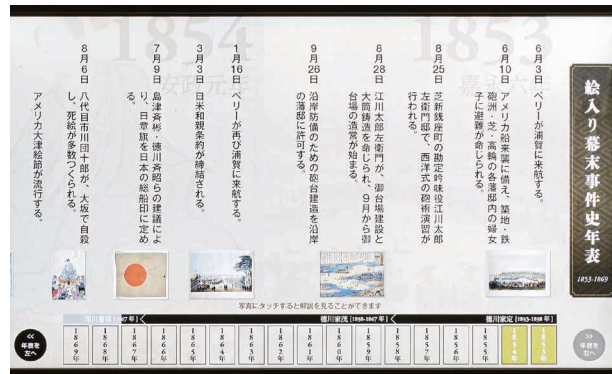 絵入り幕末事件史年表
1853-1869
1853
嘉永六年
6月3日 ペリーが浦賀に来航する。
6月10日 アメリカ船来襲に備え、築地・鉄
砲洲・芝・高輪の各藩邸内の婦女
子に避難が命じられる。
8月25日 芝新銭座町の勘定吟味役江川太郎
左衛門邸で、西洋式の砲術演習が
行われる。
8月28日 江川太郎左衛門が、御台場建設と
大筒鋳造を命じられ、9月から御
台場の造営が始まる。
9月26日 沿岸防備のための砲台建造を沿岸
の藩邸に許可する。
1854
安政元年
1月16日 ペリーが再び浦賀に来航する。
3月3日 日米和親条約が締結される。
7月9日 島津斉彬・徳川斉昭らの建議によ
り、日章旗を日本の総船印に定め
る。
8月6日 八代目市川団十郎が、大坂で自殺
し、死絵が多数つくられる。
アメリカ大津絵節が流行する。
写真にタッチすると解説を見ることができます
徳川家定[1853-1858年]
徳川家茂[1858-1867年]
徳川慶喜[1867年]
年表を
右へ
1853年
1854年
1855年
1856年
1857年
1858年
1859年
1860年
1861年
1862年
1863年
1864年
1865年
1866年
1867年
1868年
1869年
年表を
左へ